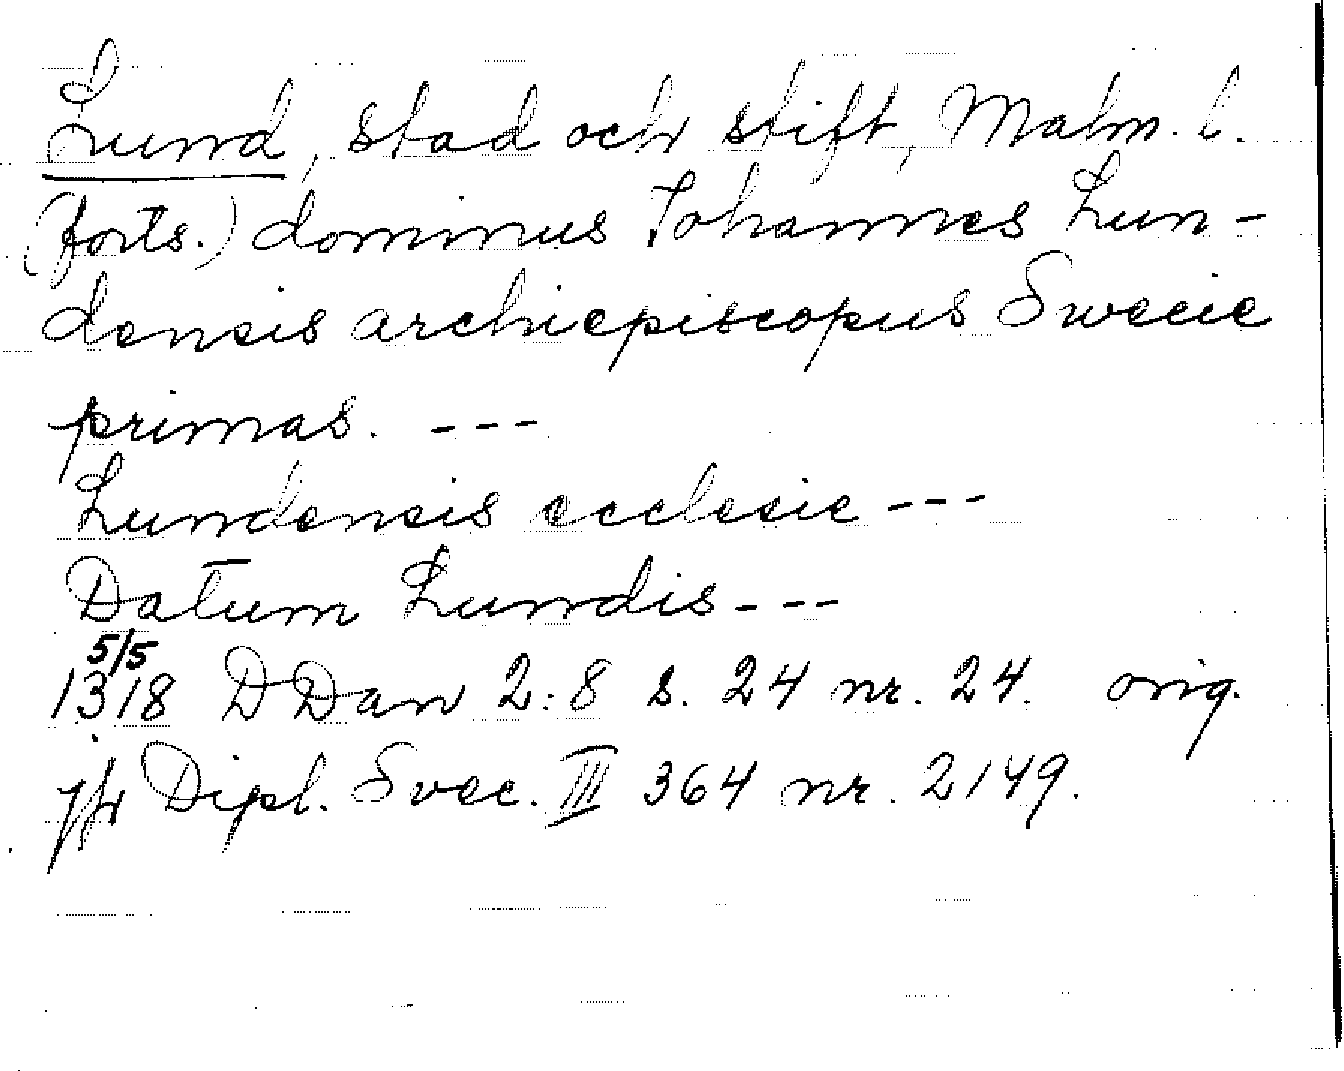 Lund, stad och stift, Malm. l.
(forts.) dominus Johannes Lun-
densis archiepiscopus Swecie
primas. ---
Lundensis ecclesie ---
Datum Lundis ---
5/5
1318 DDan 2:8 s. 24 nr. 24. orig.
jfr Dipl. Svec. III 364 nr. 2149.